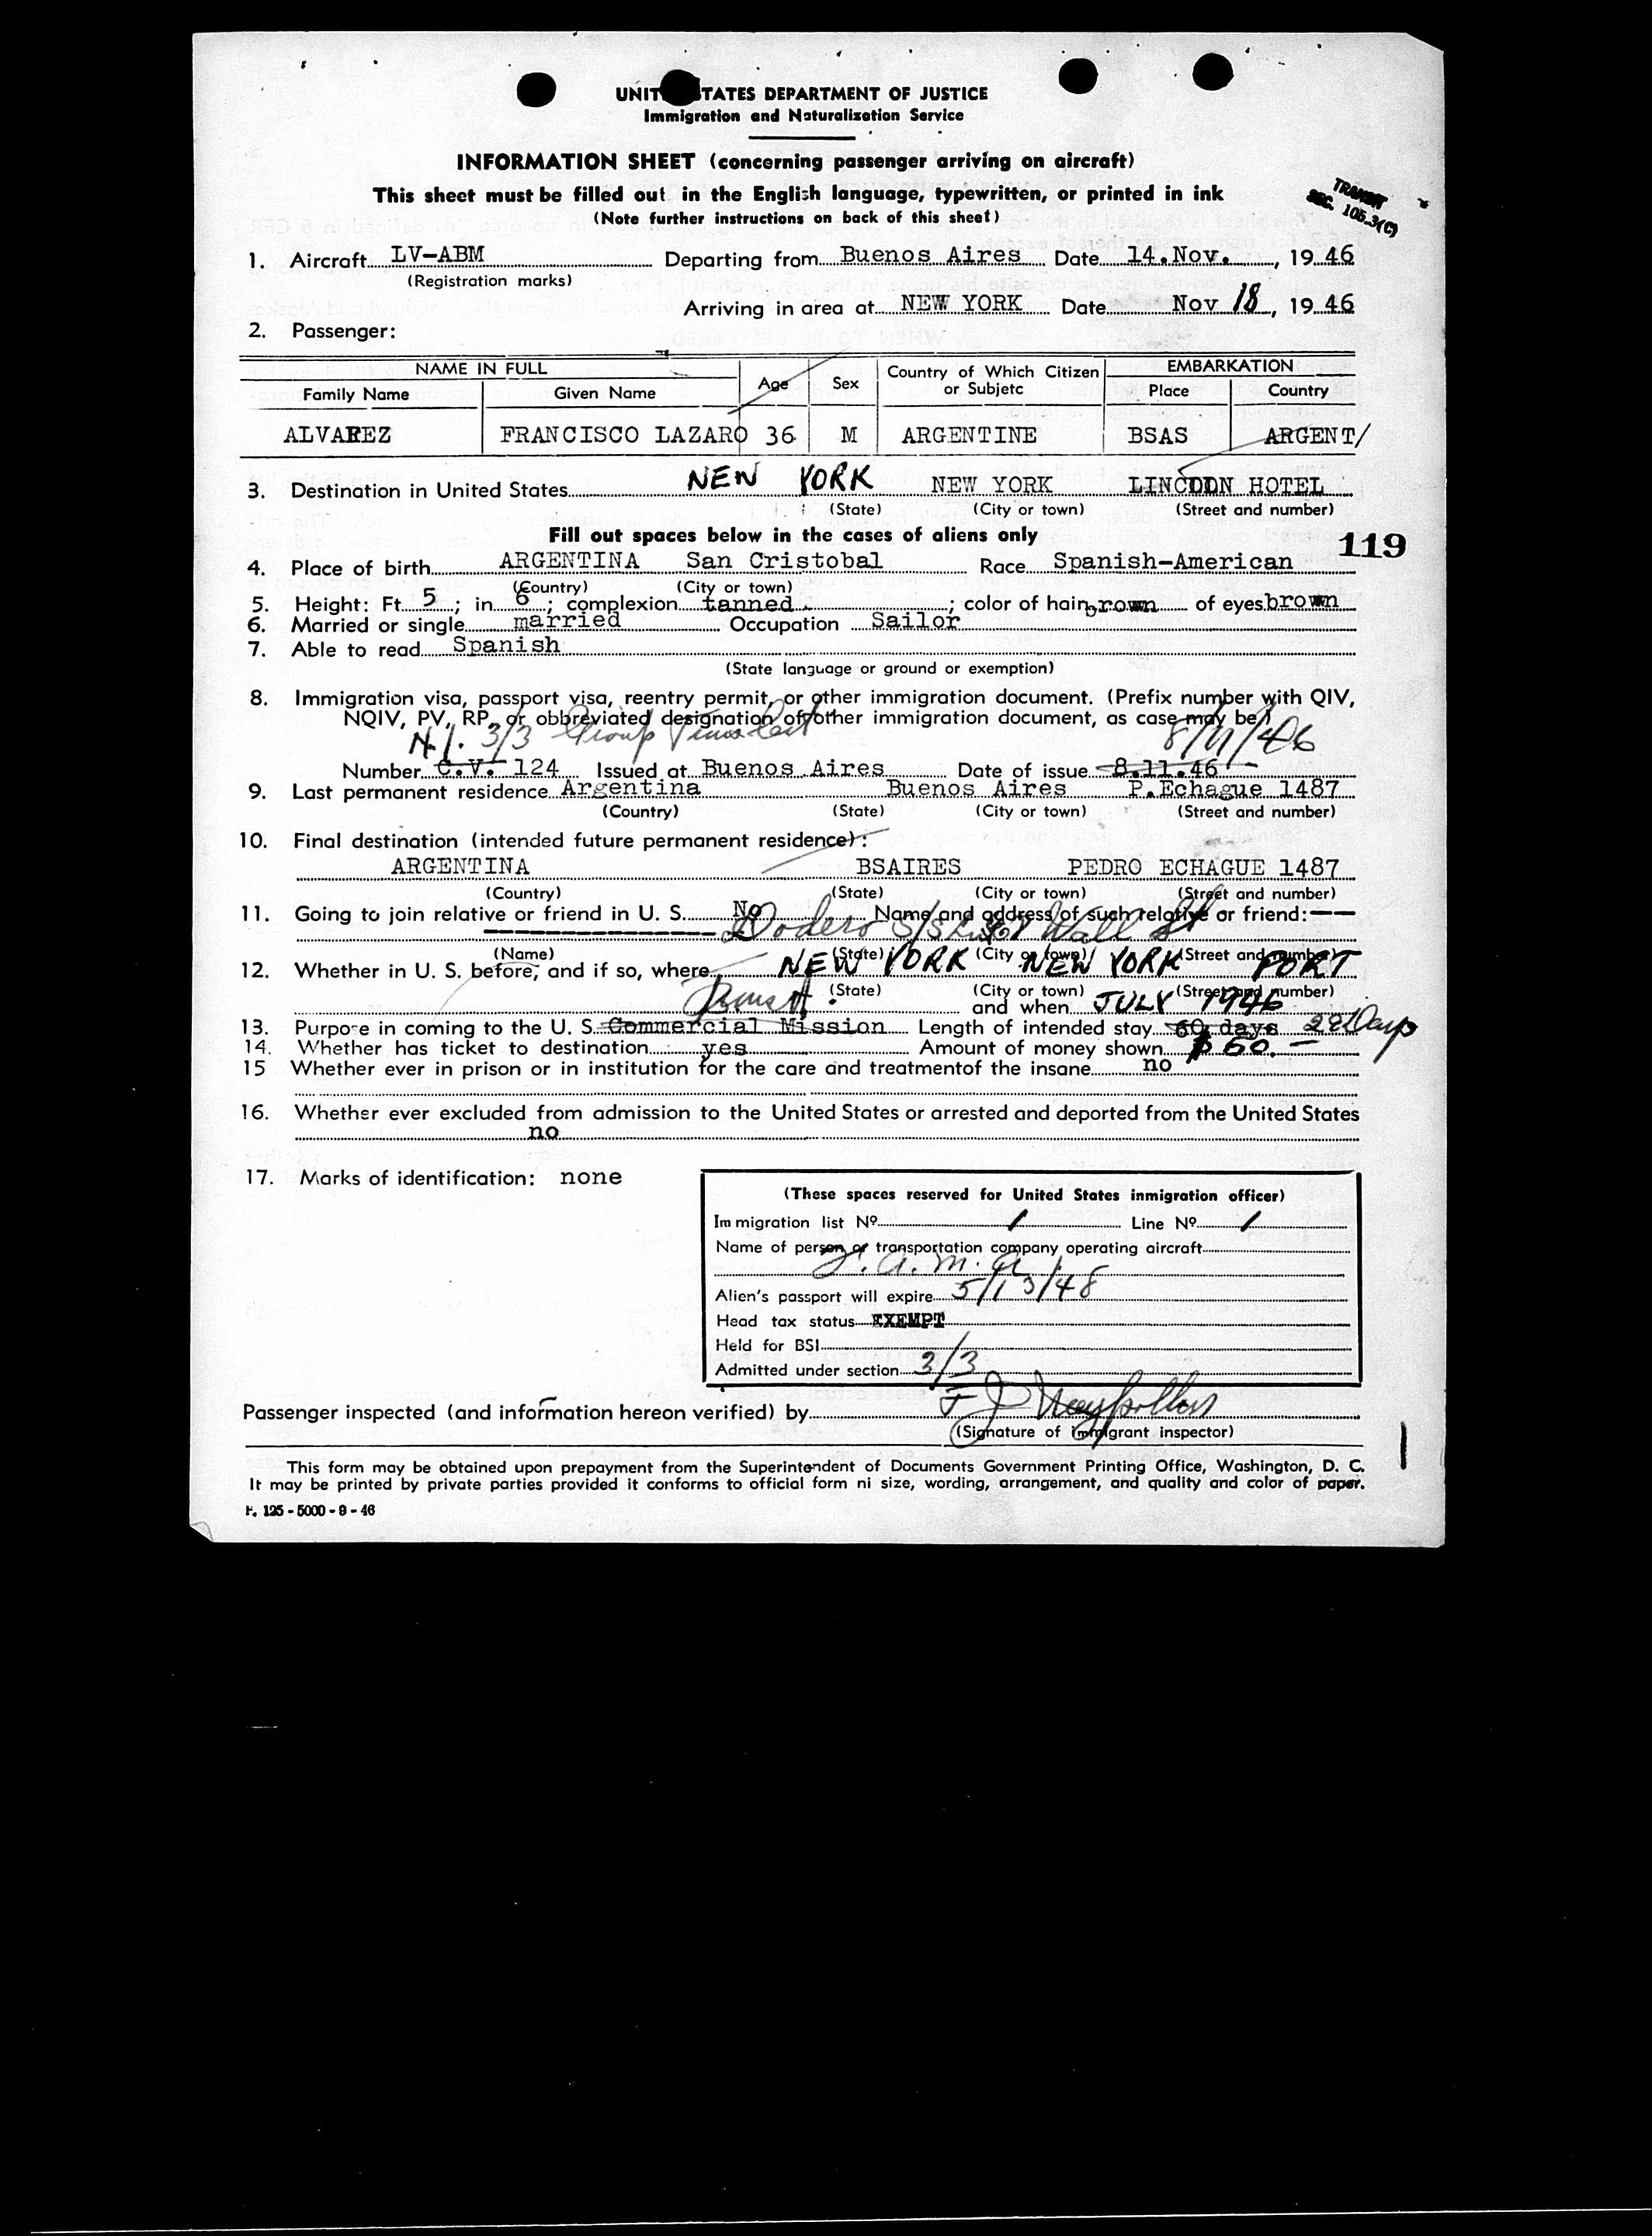 UNIT TATES DEPARTMENT OF JUSTICE
Immigration and Naturalization Service
INFORMATION SHEET (concerning passenger arriving on aircraft)
This sheet must be filled out in the English language, typewritten, or printed in ink
(Note further instructions on back of this sheet)
TRANSIT
SEC. 105.3(C)
1. Aircraft LV-ABM Departing from Buenos Aires Date 14.Nov. , 19 46
(Registration marks)
Arriving in area at NEW YORK Date Nov 18, 19 46
2. Passenger:
NAME IN FULL Age Sex Country of Which Citizen or Subjetc EMBARKATION
Family Name Given Name Place Country
ALVAREZ FRANCISCO LAZARO 36 M ARGENTINE BSAS ARGENT/
3. Destination in United States NEW YORK NEW YORK LINCOLN HOTEL
(State) (City or town) (Street and number)
Fill out spaces below in the cases of aliens only
119
4. Place of birth ARGENTINA San Cristobal Race Spanish-American
(Country) (City or town)
5. Height: Ft. 5 ; in 6 ; complexion tanned ; color of hair brown of eyes brown
6. Married or single married Occupation Sailor
7. Able to read Spanish
(State language or ground or exemption)
8. Immigration visa, passport visa, reentry permit, or other immigration document. (Prefix number with QIV,
NQIV, PV, RP, or obbreviated designation of other immigration document, as case may be)
3/3 Group 8/11/46
Number C.V. 124 Issued at Buenos Aires Date of issue 8.11.46
9. Last permanent residence Argentina Buenos Aires P.Echague 1487
(Country) (State) (City or town) (Street and number)
10. Final destination (intended future permanent residence):
ARGENTINA BSAIRES PEDRO ECHAGUE 1487
(Country) (State) (City or town) (Street and number)
11. Going to join relative or friend in U. S. No Name and address of such relative or friend:
Dodero S/S Wall St
(Name) (State) (City or town) (Street and number)
12. Whether in U. S. before, and if so, where NEW YORK NEW YORK PORT
(State) (City or town) (Street and number)
and when JULY 1946
13. Purpose in coming to the U. S. Commercial Mission Length of intended stay 60 days 29 Days
14. Whether has ticket to destination yes Amount of money shown $ 60.—
15 Whether ever in prison or in institution for the care and treatmentof the insane no
16. Whether ever excluded from admission to the United States or arrested and deported from the United States
no
17. Marks of identification: none
(These spaces reserved for United States inmigration officer)
Immigration list Nº 1 Line Nº 1
Name of person or transportation company operating aircraft
F.A.M.A.
Alien's passport will expire 5/13/48
Head tax status EXEMPT
Held for BSI
Admitted under section 3/3
Passenger inspected (and information hereon verified) by F J
(Signature of immigrant inspector)
This form may be obtained upon prepayment from the Superintendent of Documents Government Printing Office, Washington, D. C.
It may be printed by private parties provided it conforms to official form ni size, wording, arrangement, and quality and color of paper.
F. 125 - 5000 - 9 - 46